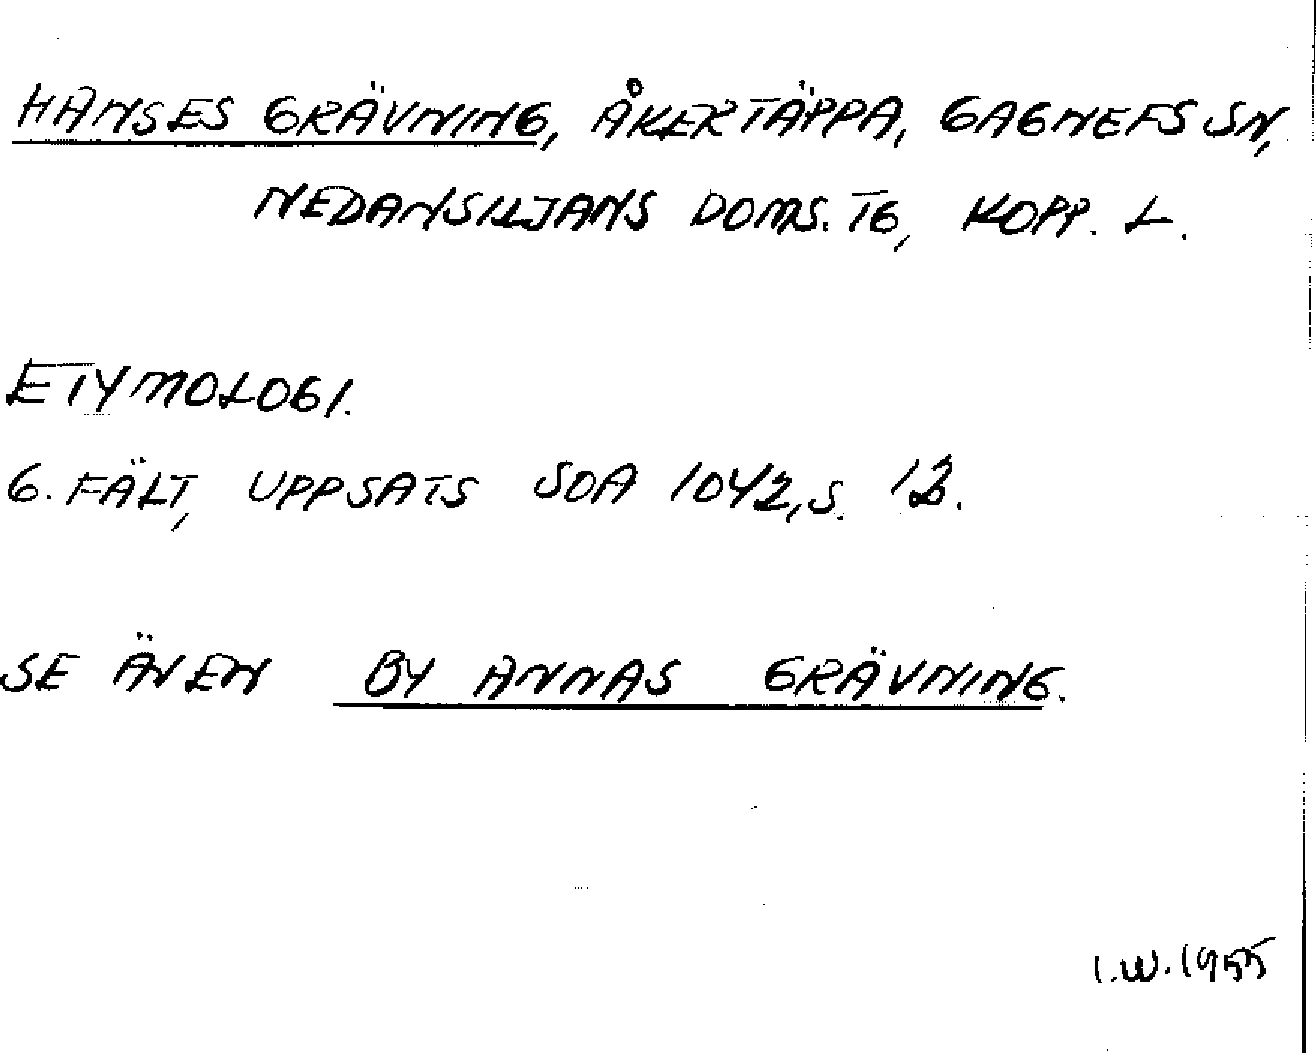 HANSES GRÄVNING, ÅKERTÄPPA, GAGNEFS SN,
NEDANSILJANS DOMS. TG, KOPP. L.
ETYMOLOGI.
G. FÄLT, UPPSATS SOA 1042, S.
SE ÄVEN BY ANNAS GRÄVNING.
I.W. 1955